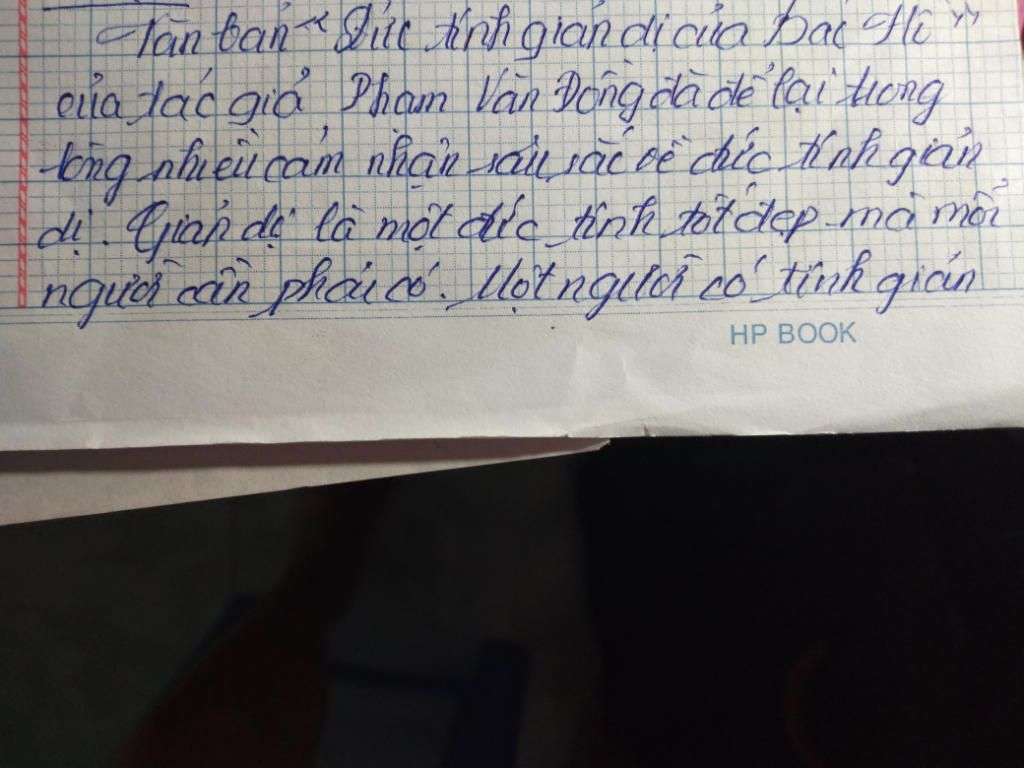 Văn bản "Đức tính giản dị của Bác Hồ"
của tác giả Phạm Văn Đồng đã để lại trong
lòng nhiều cảm nhận sâu sắc về đức tính giản
dị. Giản dị là một đức tính tốt đẹp mà mỗi
người cần phải có. Một người có tính giản
HP BOOK